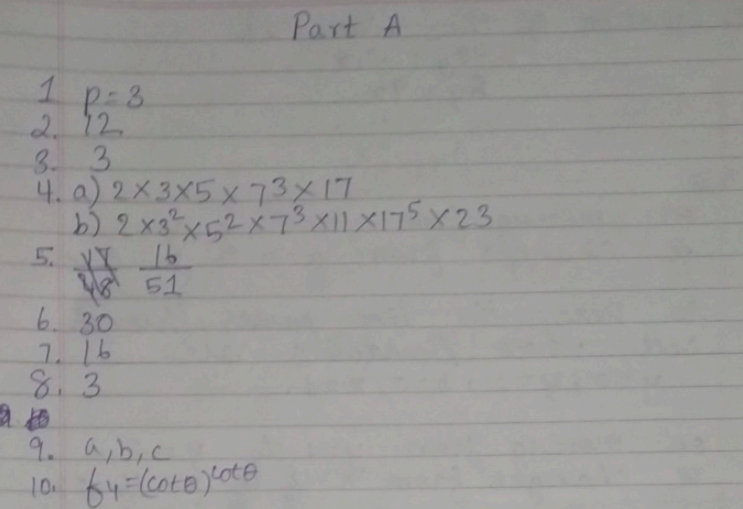 Part A
1 p=3
2. 12
3. 3
4. a) 2×3×5×7³×17
b) 2×3²×5²×7³×11×17⁵×23
5. 16/51
6. 30
7. 16
8. 3
9. a, b, c
10. t₄=(cotθ)^cotθ